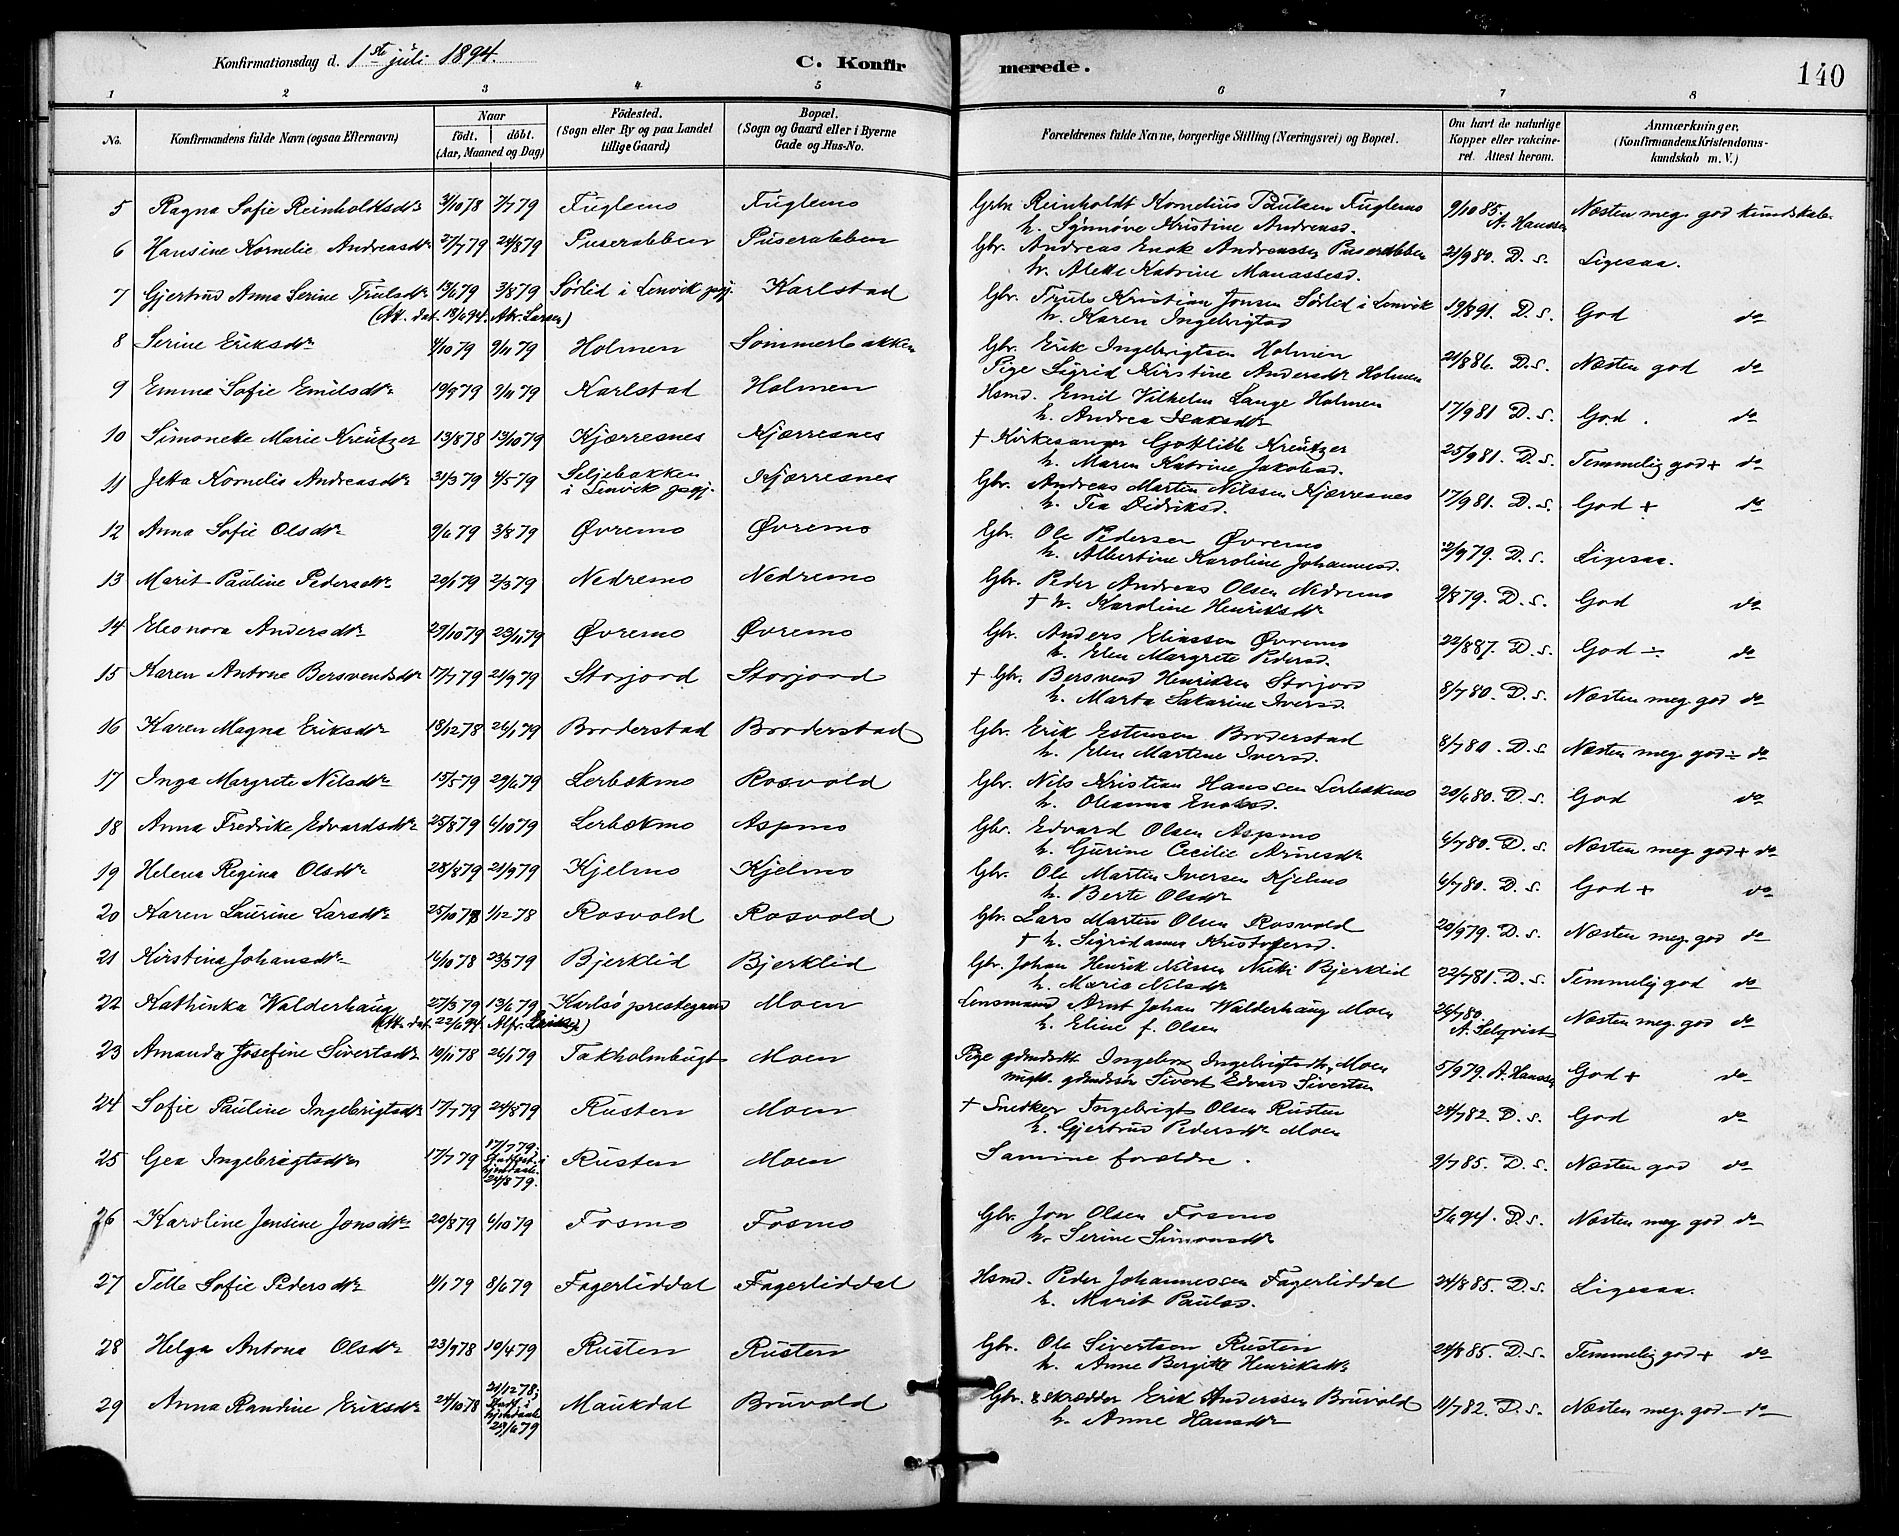 Konfirmationsdag d. 1ste juli 1894. C. Konfir merede. 140
1 2 3 4 5 6 7 8
No. Konfirmandens fulde Navn (ogsaa Efternavn) Naar födt. döbt. (Aar, Maaned og Dag) Födested. (Sogn eller By og paa Landet tillige Gaard) Bopæl. (Sogn og Gaard eller i Byerne Gade og Hus-No. Forældrenes fulde Navne, borgerlige Stilling (Næringsvei) og Bopæl. Om havt de naturlige Kopper eller vakcineret. Attest herom. Anmærkninger. (Konfirmandens Kristendomskundskab m. V.)
5 Ragna Sofie Reinholdtsdtr 3/10 78 7/7 79 Fuglemo Fuglemo Grbr. Reinholdt Kornelius Paulsen Fuglemo 9/10 85. A. Hansen Næsten meg. god kundskab.
h. Synnøve Kristine Andreasd.
6 Hansine Kornelie Andreasdtr 27/7 79 24/8 79 Puserabben Puserabben Gbr. Andreas Enok Andreassen Puserabben 21/9 80. D. s. Ligesaa.
h. Alette Katrine Manassesd.
7 Gjertrud Anna Serine Trulsdtr 13/6 79 3/8 79 Sørlid i Lenvik pgj. Karlstad Gbr. Truls Kristian Jonsen Sørlid i Lenvik 19/8 91. D. s. God do
(Att. dat. 18/6 94. Alr. Larsen) h. Karen Ingebrigtsd
8 Serine Eriksdtr 4/10 79 9/11 79 Holmen Sommerbakken Gbr. Erik Ingebrigtsen Holmen 21/8 86. D. s. Næsten god do
Pige Sigrid Kirstine Andersdtr Holmen
9 Emma Sofie Emilsdtr 19/9 79 9/11 79 Karlstad Holmen Hsmd. Emil Vilhelm Lange Holmen 17/9 81 D. s. God. do
h. Andrea Isaksdtr
10 Simonette Marie Kreützer 13/8 78 13/10 79 Kjærresnes Kjærresnes † Kirkesanger Gottlieb Kreützer 25/9 81. D. s. Temmelig god + do
h. Maren Katrine Jakobsd.
11 Jetta Kornelie Andreasdtr 31/3 79 4/5 79 Seljebakken i Lenvik pgj. Kjærresnes Gbr. Andreas Martin Nilssen Kjærresnes 17/9 81. D. s. God + do
h. Tea Didriksd.
12 Anna Sofie Olsdtr 9/6 79 3/8 79 Øvremo Øvremo Gbr. Ole Pedersen Øvremo 2/9 79. D. s. Ligesaa.
h. Albertine Karoline Johannesd.
13 Marit Pauline Pedersdtr 20/1 79 2/3 79 Nedremo Nedremo Gbr. Peder Andreas Olsen Nedremo 9/8 79. D. s. God do
† h. Karoline Henriksdtr
14 Eleonora Andersdtr 29/10 79 23/11 79 Øvremo Øvremo Gbr. Anders Eliassen Øvremo 22/8 87. D. s. God ÷ do
h. Elen Margrete Pedersd.
15 Karen Antone Bersvendsdtr 17/7 79 21/9 79 Storjord Storjord † Gbr. Bersvend Henriksen Storjord 8/7 80. D. s. Næsten meg. god do
h. Marta Sakarine Iversd.
16 Karen Magna Eriksdtr 18/12 78 26/1 79 Broderstad Broderstad Gbr. Erik Estensen Broderstad 8/7 80. D. s. Næsten meg. god ÷ do
h. Elen Martine Iversd.
17 Inga Margrete Nilsdtr 15/5 79 29/6 79 Lerbækmo Rosvold Gbr. Nils Kristian Hanssen Lerbækmo 20/6 80. D. s. God do
h. Oleanna Enoksd.
18 Anna Fredrike Edvardsdtr 25/8 79 6/10 79 Lerbækmo Aspmo Gbr. Edvard Olsen Aspmo 6/7 80. D. s. Næsten meg. god + do
h. Gurine Cecilie Arnesdtr
19 Helena Regina Olsdtr 28/8 79 21/9 79 Kjelmo Kjelmo Gbr. Ole Martin Iversen Kjelmo 6/7 80. D. s. God + do
h. Berte Olsdtr
20 Karen Laurine Larsdtr 25/10 78 1/12 78 Rosvold Rosvold Gbr. Lars Martin Olsen Rosvold 20/9 79. D. s. Næsten meg. god do
† h. Sigridanna Kristofersd.
21 Kirstina Johansdtr 16/10 78 23/3 79 Bjerklid Bjerklid Gbr. Johan Henrik Nilsen Nikki Bjerklid 22/7 81. D. s. Temmelig god do
h. Maria Nilsdtr
22 Kathinka Walderhaug 27/3 79 13/6 79 Karlsö prestegaard Moen Lensmand Arnt Johan Walderhaug Moen 26/7 80. A. Selqvist Næsten meg. god do
(Att. dat. 22/6 94. Alfr. Eriksen) h. Eline f. Olsen
23 Amanda Josefine Sivertsdtr 19/11 78 26/1 79 Takholmbugt Moen Pige gdmdsdtr Ingebor Ingebrigtsdtr, Moen 5/9 79. A. Hanssen God + do
ungk. gdmdssøn Sivert Edvard Sivertsen
24 Sofie Pauline Ingebrigtsdtr 17/7 79 24/8 79 Rusten Moen † Snedker Ingebrigt Olsen Rusten 24/7 82. D. s. God do
h. Gjertrud Pedersdtr Moen
25 Gea Ingebrigtsdtr 17/7 79 17/7 79. Stadfæst. i hjemdaab. 24/8 79. Rusten Moen Samme forældre. 9/7 85. D. s. Næsten god do
26 Karoline Jensine Jonsdtr 20/8 79 6/10 79 Fosmo Fosmo Gbr. Jon Olsen Fosmo 5/6 94. D. s. Næsten meg. god do
h. Serine Simonsdtr
27 Tella Sofie Pedersdtr 4/1 79 8/6 79 Fagerliddal Fagerliddal Hsmd. Peder Johannessen Fagerliddal 24/8 85. D. s. Ligesaa.
h. Marit Paulsd.
28 Helga Antona Olsdtr 23/9 78 10/4 79 Rusten Rusten Gbr. Ole Sivertsen Rusten 24/8 85. D. s. Temmelig god + do
h. Anne Bergitte Henriksdtr
29 Anna Randine Eriksdtr 24/10 78 21/12 78; Stadf. i hjemdaab 29/6 79 Maukdal Bruvold Gbr. & skrædder Erik Anderssen Bruvold 4/7 82. D. s. Næsten meg. god do
h. Anne Hansdtr